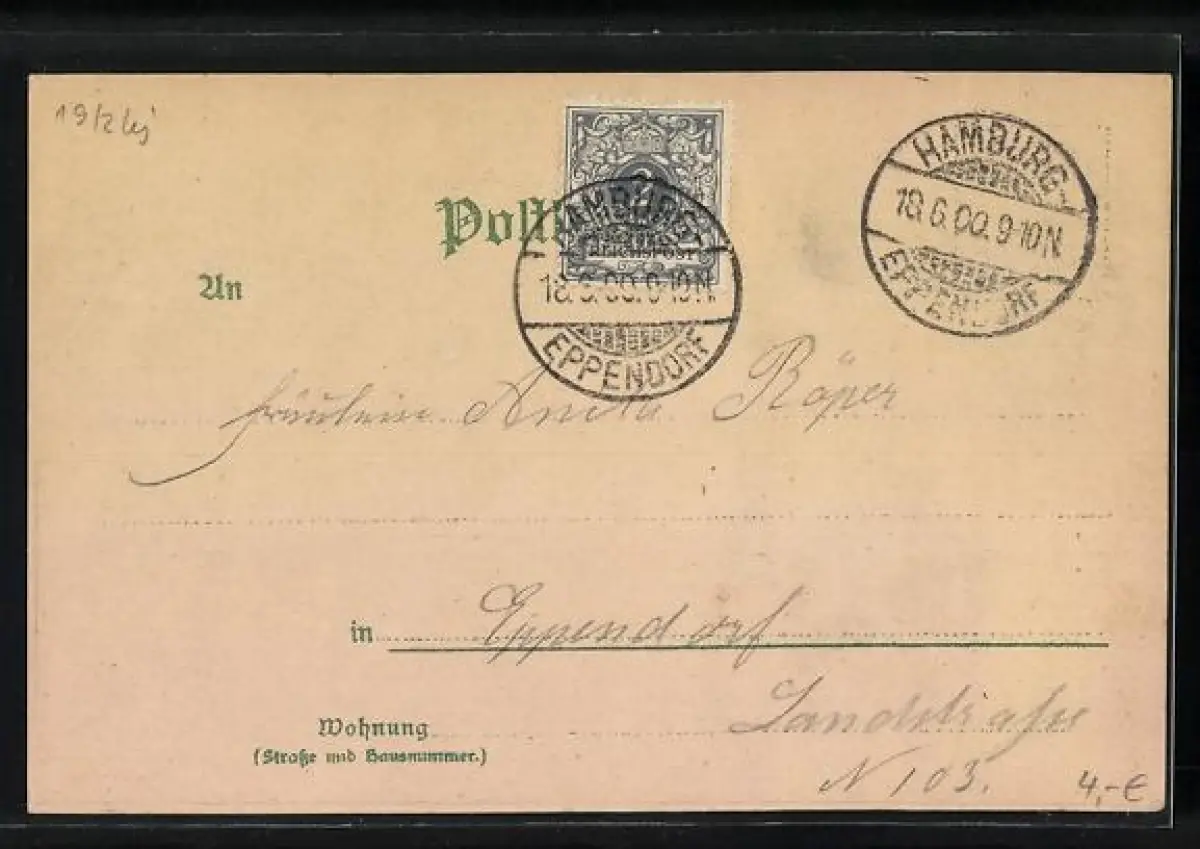 HAMBURG
18.6.00.9-10N.
EPPENDORF
2
Reichspost
HAMBURG
18.6.00.9-10N.
EPPENDORF
Postk
An
Fräulein Anita Röper
in Eppendorf
Wohnung Landstraße
(Straße und Hausnummer.)
N 103.
4,-€